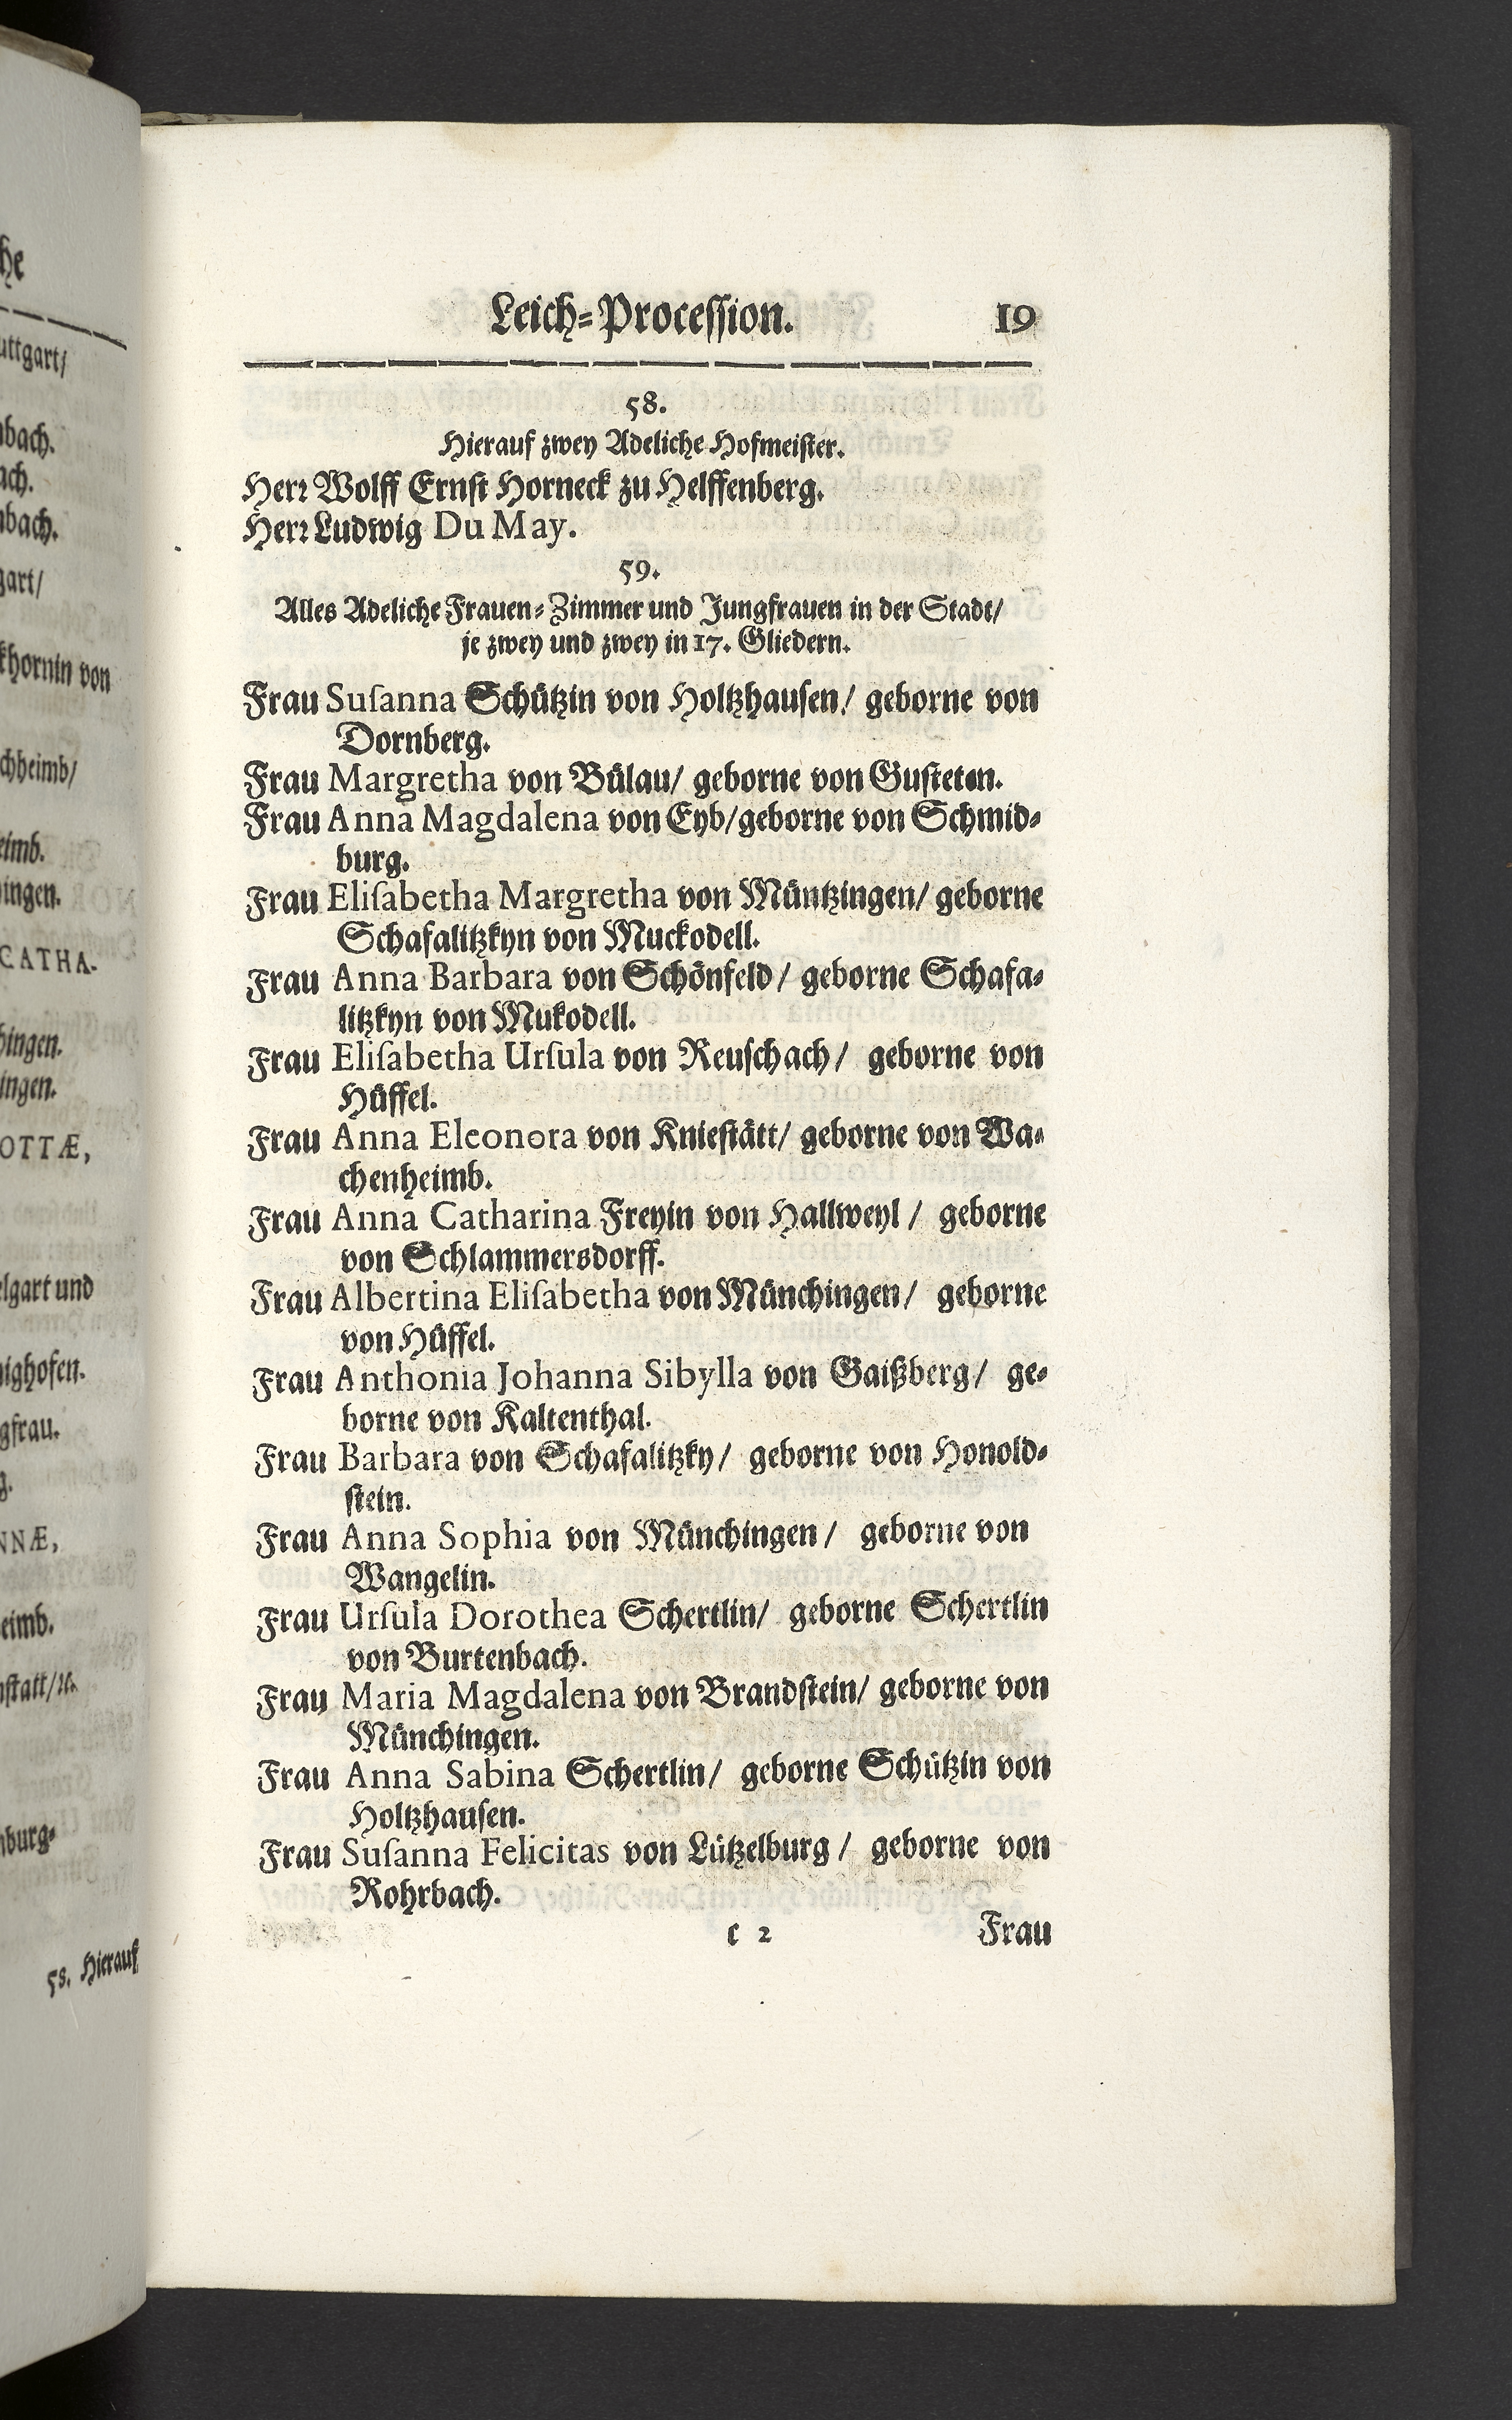 he
uttgart/
nbach.
ach.
nbach.
gart/
khornin von
chheimb/
eimb.
ningen.
CATHA-
hingen.
ingen.
OTTÆ,
elgart und
nighofen.
gfrau.
g.
NNÆ,
eimb.
nstatt/ꝛc.
nburg-
58. Hierauf
Leich-Procession. 19
58.
Hierauf zwey Adeliche Hofmeister.
Herꝛ Wolff Ernst Horneck zu Helffenberg.
Herꝛ Ludwig Du May.
59.
Alles Adeliche Frauen-Zimmer und Jungfrauen in der Stadt/
je zwey und zwey in 17. Gliedern.
Frau Suſanna Schützin von Holtzhausen/ geborne von
Dornberg.
Frau Margretha von Bülau/ geborne von Gusteten.
Frau Anna Magdalena von Eyb/geborne von Schmid-
burg.
Frau Eliſabetha Margretha von Müntzingen/ geborne
Schafalitzkyn von Muckodell.
Frau Anna Barbara von Schönfeld/ geborne Schafa-
litzkyn von Mukodell.
Frau Eliſabetha Urſula von Reuschach/ geborne von
Hüffel.
Frau Anna Eleonora von Kniestätt/ geborne von Wa-
chenheimb.
Frau Anna Catharina Freyin von Hallweyl/ geborne
von Schlammersdorff.
Frau Albertina Eliſabetha von Münchingen/ geborne
von Hüffel.
Frau Anthonia Johanna Sibylla von Gaißberg/ ge-
borne von Kaltenthal.
Frau Barbara von Schafalitzky/ geborne von Honold-
stein.
Frau Anna Sophia von Münchingen/ geborne von
Wangelin.
Frau Urſula Dorothea Schertlin/ geborne Schertlin
von Burtenbach.
Frau Maria Magdalena von Brandstein/ geborne von
Münchingen.
Frau Anna Sabina Schertlin/ geborne Schützin von
Holtzhausen.
Frau Suſanna Felicitas von Lützelburg/ geborne von
Rohrbach.
c 2 Frau